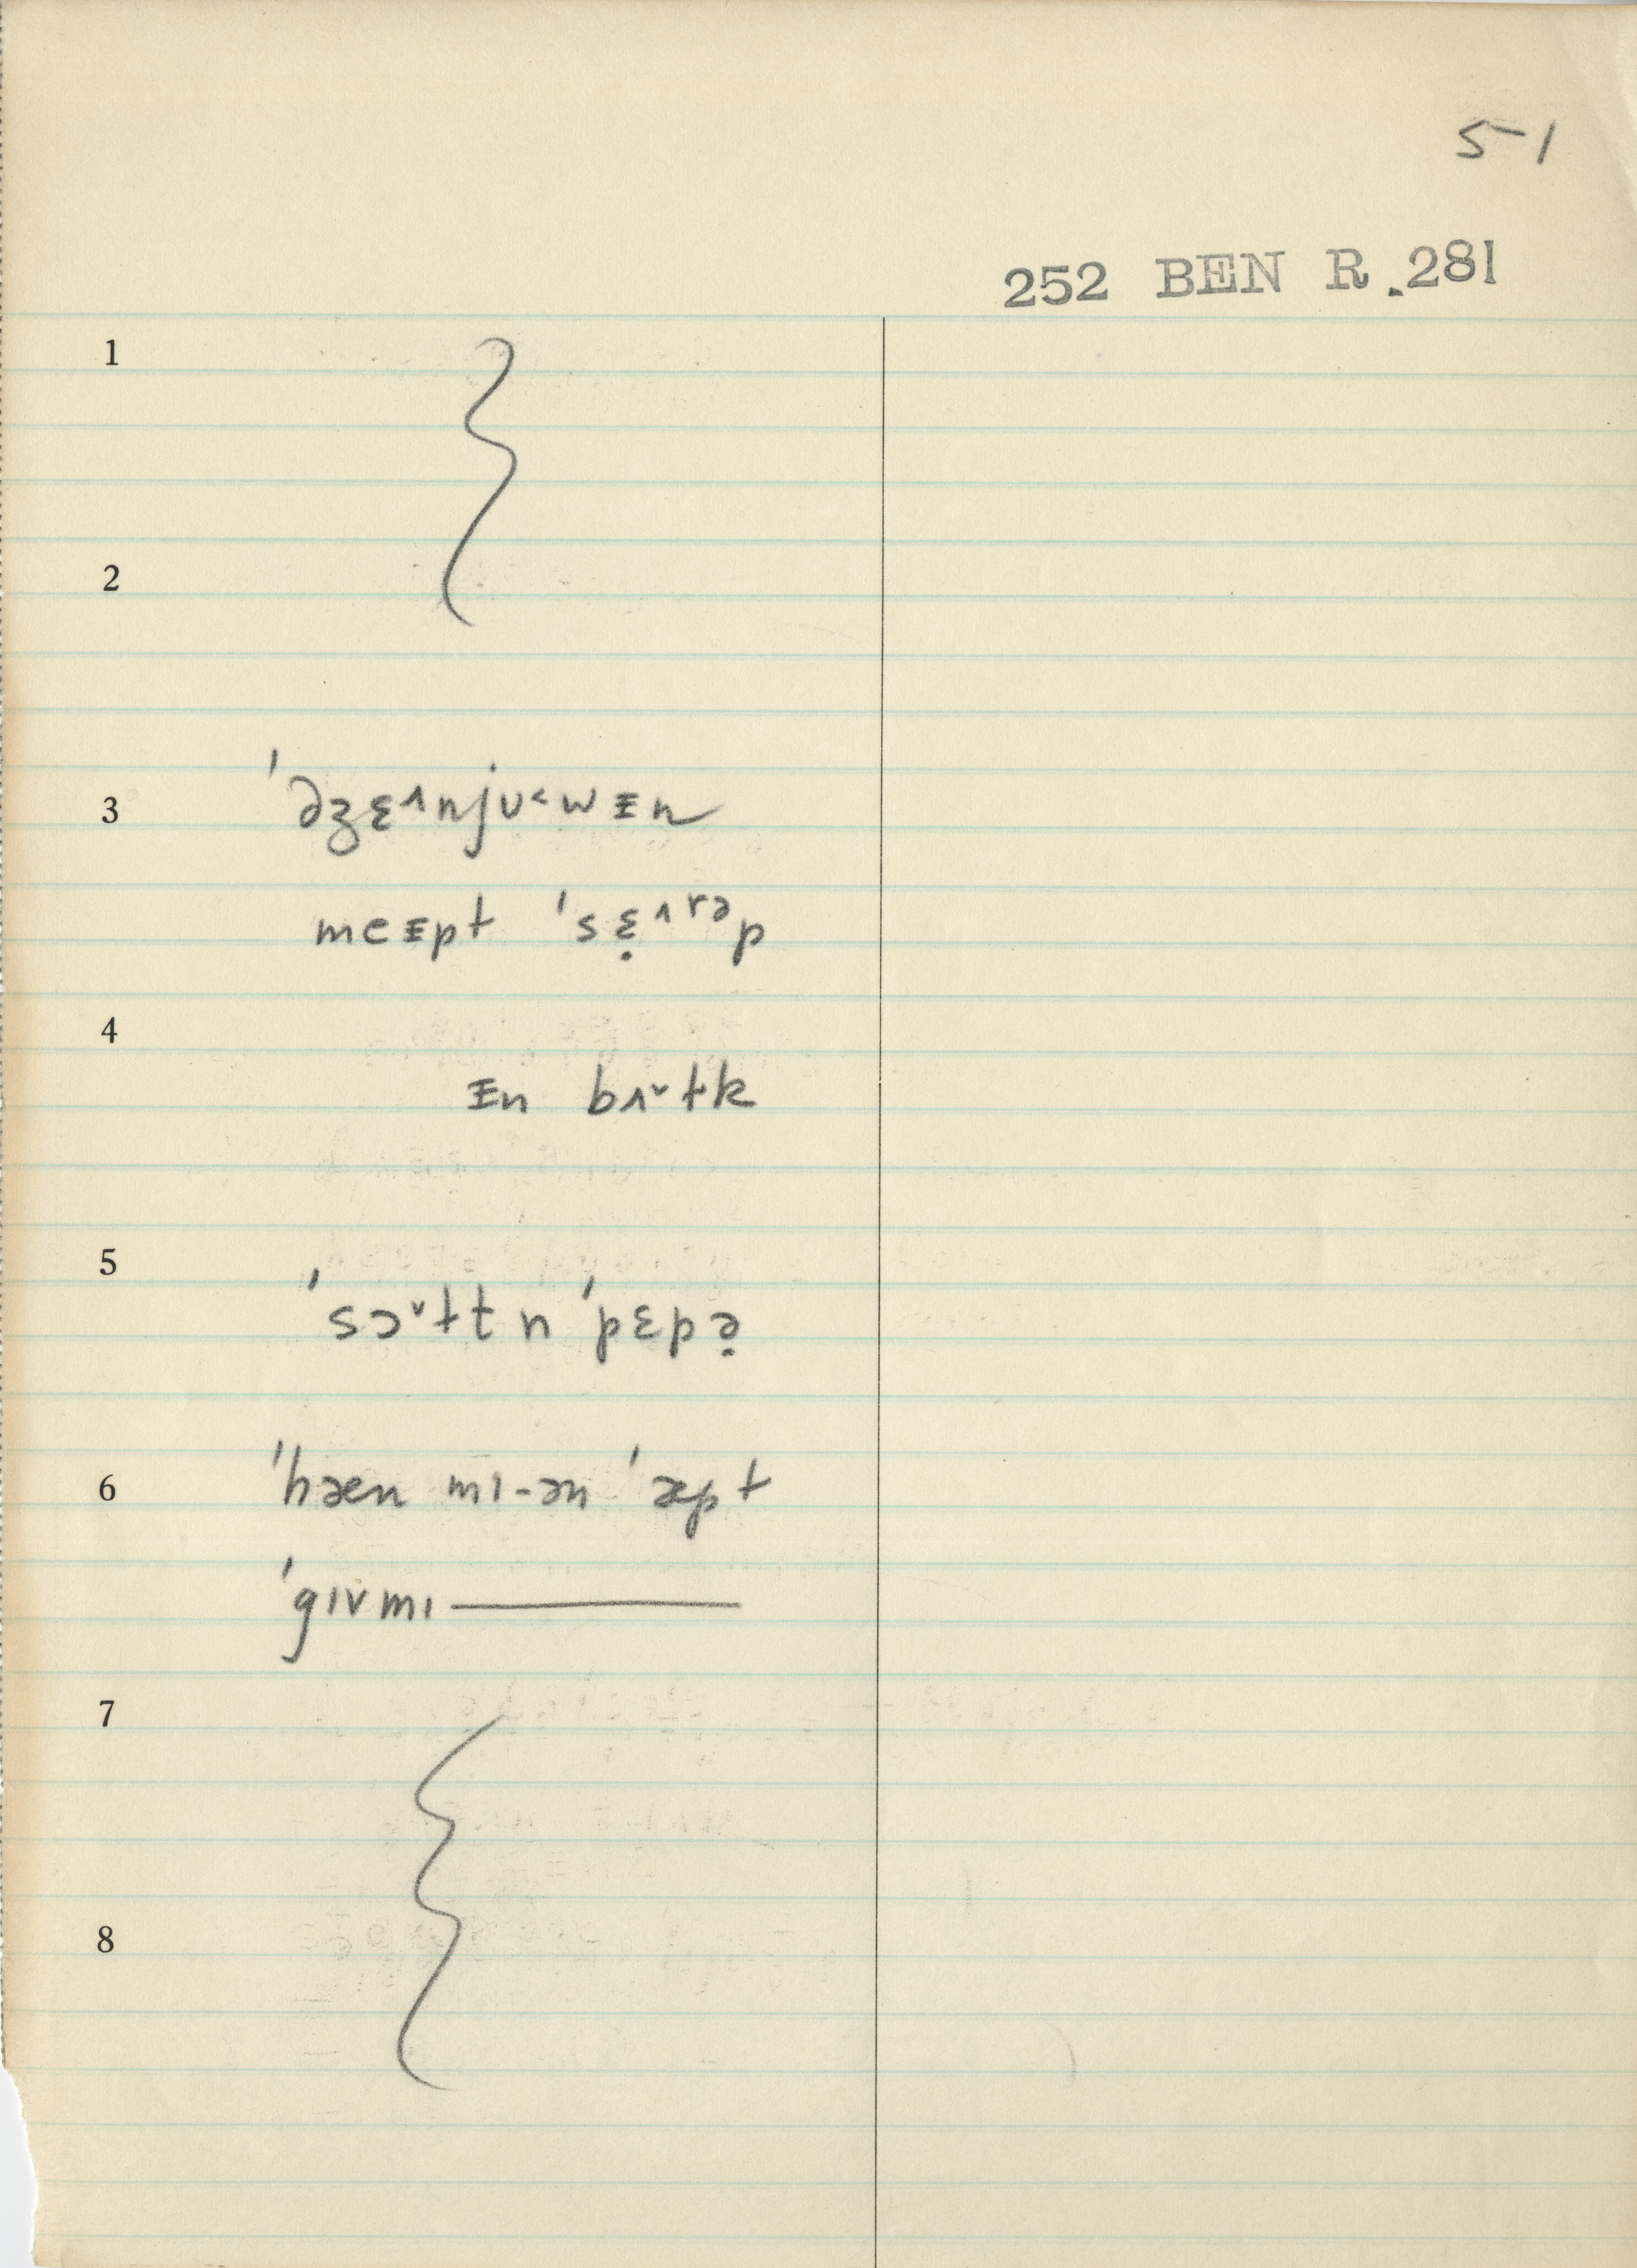 5-1
252 BEN R. 281
1
2
3 ˈəʒɛ˄njᴜ˂wᵻn
meᵻpɫ ˈsɛ̣˄ʳᵊp
4
ᵻn bʌ˅ɫk
5 ˈsɔ˅ɫt n ˈpɛpə̣
6 ˈhæn mɪ-ən ˈæpɫ
ˈgɪvmɪ ———
7
8